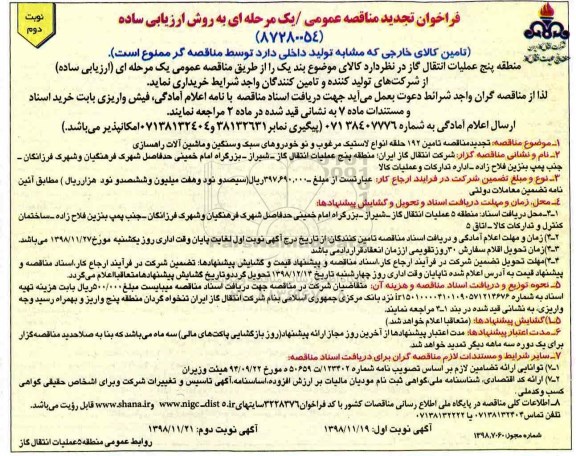 نوبت دوم
فراخوان تجدید مناقصه عمومی /یک مرحله ای به روش ارزیابی ساده
(۸۷۲۸۰۰۵۴)
(تامین کالای خارجی که مشابه تولید داخلی دارد توسط مناقصه گر ممنوع است).
منطقه پنج عملیات انتقال گاز در نظر دارد کالای موضوع بند یک را از طریق مناقصه عمومی یک مرحله ای (ارزیابی ساده)
از شرکت‌های تولید کننده و تامین کنندگان واجد شرایط خریداری نماید.
لذا از مناقصه گران واجد شرائط دعوت بعمل می‌آید جهت دریافت اسناد مناقصه با نامه اعلام آمادگی، فیش واریزی بابت خرید اسناد
و مستندات ماده ۷ به نشانی قید شده در ماده ۲ مراجعه نمایند.
ارسال اعلام آمادگی به شماره ۰۷۱۳۸۴۰۷۷۷۶ (پیگیری نمابر ۳۸۱۳۲۶۳۱ و ۰۷۱۳۸۱۳۲۴۰۴ امکانپذیر می‌باشد.)
۱ـ موضوع مناقصه: تجدیدمناقصه تامین ۱۹۲ حلقه انواع لاستیک مرغوب و نو خودروهای سبک وسنگین وماشین آلات راهسازی
۲ـ نام و نشانی مناقصه گزار: شرکت انتقال گاز ایران؛ منطقه پنج عملیات انتقال گاز ـ شیراز ـ بزرگراه امام خمینی حدفاصل شهرک فرهنگیان وشهرک فرزانگان ـ
جنب پمپ بنزین فلاح زاده ـ اداره تدارکات وعملیات کالا
۳ـ نوع و مبلغ تضمین شرکت در فرایند ارجاع کار: عبارتست از مبلغ ۳۹۷,۶۹۰,۰۰۰ـریال(سیصدو نود وهفت میلیون وششصدو نود هزارریال) مطابق آئین
نامه تضمین معاملات دولتی
۴ـ محل، زمان و مهلت دریافت اسناد و تحویل و گشایش پیشنهادها:
۱ـ۴ـ محل دریافت اسناد: منطقه ۵ عملیات انتقال گاز ـ شیراز ـ بزرگراه امام خمینی حدفاصل شهرک فرهنگیان وشهرک فرزانگان ـ جنب پمپ بنزین فلاح زاده ـ ساختمان
کنترل و تدارکات کالا ـ اتاق ۵
۲ـ۴ زمان و مهلت اعلام آمادگی و دریافت اسناد مناقصه تامین کنندگان از تاریخ درج آگهی نوبت اول لغایت پایان وقت اداری روز یکشنبه مورخ ۱۳۹۸/۱۱/۲۷ می‌باشد.
۳ـ۴ زمان تحویل اقلام سفارش ۳۰ روزتقویمی اززمان انعقادقراردادمی باشد.
۴ـ۴مهلت تحویل تضمین شرکت در فرآیند ارجاع کار،اسناد مناقصه و پیشنهاد قیمت و گشایش پیشنهادها: تضمین شرکت در فرآیند ارجاع کار،اسناد مناقصه و
پیشنهاد قیمت به آدرس اعلام شده تاپایان وقت اداری روز چهارشنبه تاریخ ۱۳۹۸/۱۲/۱۴ تحویل گرددوتاریخ گشایش پیشنهادهامتعاقبااعلام می‌گردد.
۵ـ نحوه توزیع و دریافت اسناد مناقصه و هزینه آن: متقاضیان شرکت در مناقصه جهت دریافت اسناد مناقصه میبایست مبلغ۵۰۰/۰۰۰ریال بابت هزینه تهیه
اسناد به شماره نزد بانک مرکزی جمهوری اسلامی بنام شرکت انتقال گاز ایران تنخواه گردان منطقه پنج واریز و بهمراه رسید وجه
واریزی، به نشانی قید شده در بند ۱ـ۴ مراجعه نمایند.
۱ـ۵) گشایش پیشنهادها: (متعاقبا اعلام خواهد شد.)
۶ـ مدت اعتبار پیشنهادها: مدت اعتبار پیشنهادها از آخرین روز مجاز ارائه پیشنهاد(روز بازگشایی پاکت‌های مالی) سه ماه می‌باشد که بنا به صلاحدید مناقصه گزار
برای یک دوره سه ماهه دیگر تمدید خواهد شد.
۷ـ سایر شرایط و مستندات لازم مناقصه گران برای دریافت اسناد مناقصه:
۱ـ۷) توانایی ارائه تضامین لازم بر اساس تصویب نامه شماره ۱۲۳۴۰۲/ت ۵۰۶۵۹ ه مورخ ۹۴/۰۹/۲۲ هیئت وزیران
۲ـ۷) ارائه کد اقتصادی، شناسنامه ملی،گواهی ثبت نام مودیان مالیات بر ارزش افزوده،اساسنامه،آگهی تاسیس و تغییرات شرکت و برای اشخاص حقیقی گواهی
کسب و کدملی.
۸ـ اطلاعات کلی مناقصه در پایگاه ملی اطلاع رسانی مناقصات کشور با کد فراخوان۳۲۲۸۳۷۶ سایتهای www.nigc_dist ۵.ir و www.shana.ir قابل رؤیت می‌باشد.
تلفن تماس:۰۷۱۳۸۱۳۲۴۰۴ یا ۰۷۱۳۸۱۳۲۲۲۲
آگهی نوبت اول: ۱۳۹۸/۱۱/۱۹
آگهی نوبت دوم: ۱۳۹۸/۱۱/۲۱
شماره مجوز: ۱۳۹۸.۷۰۶۰
روابط عمومی منطقه۵عملیات انتقال گاز